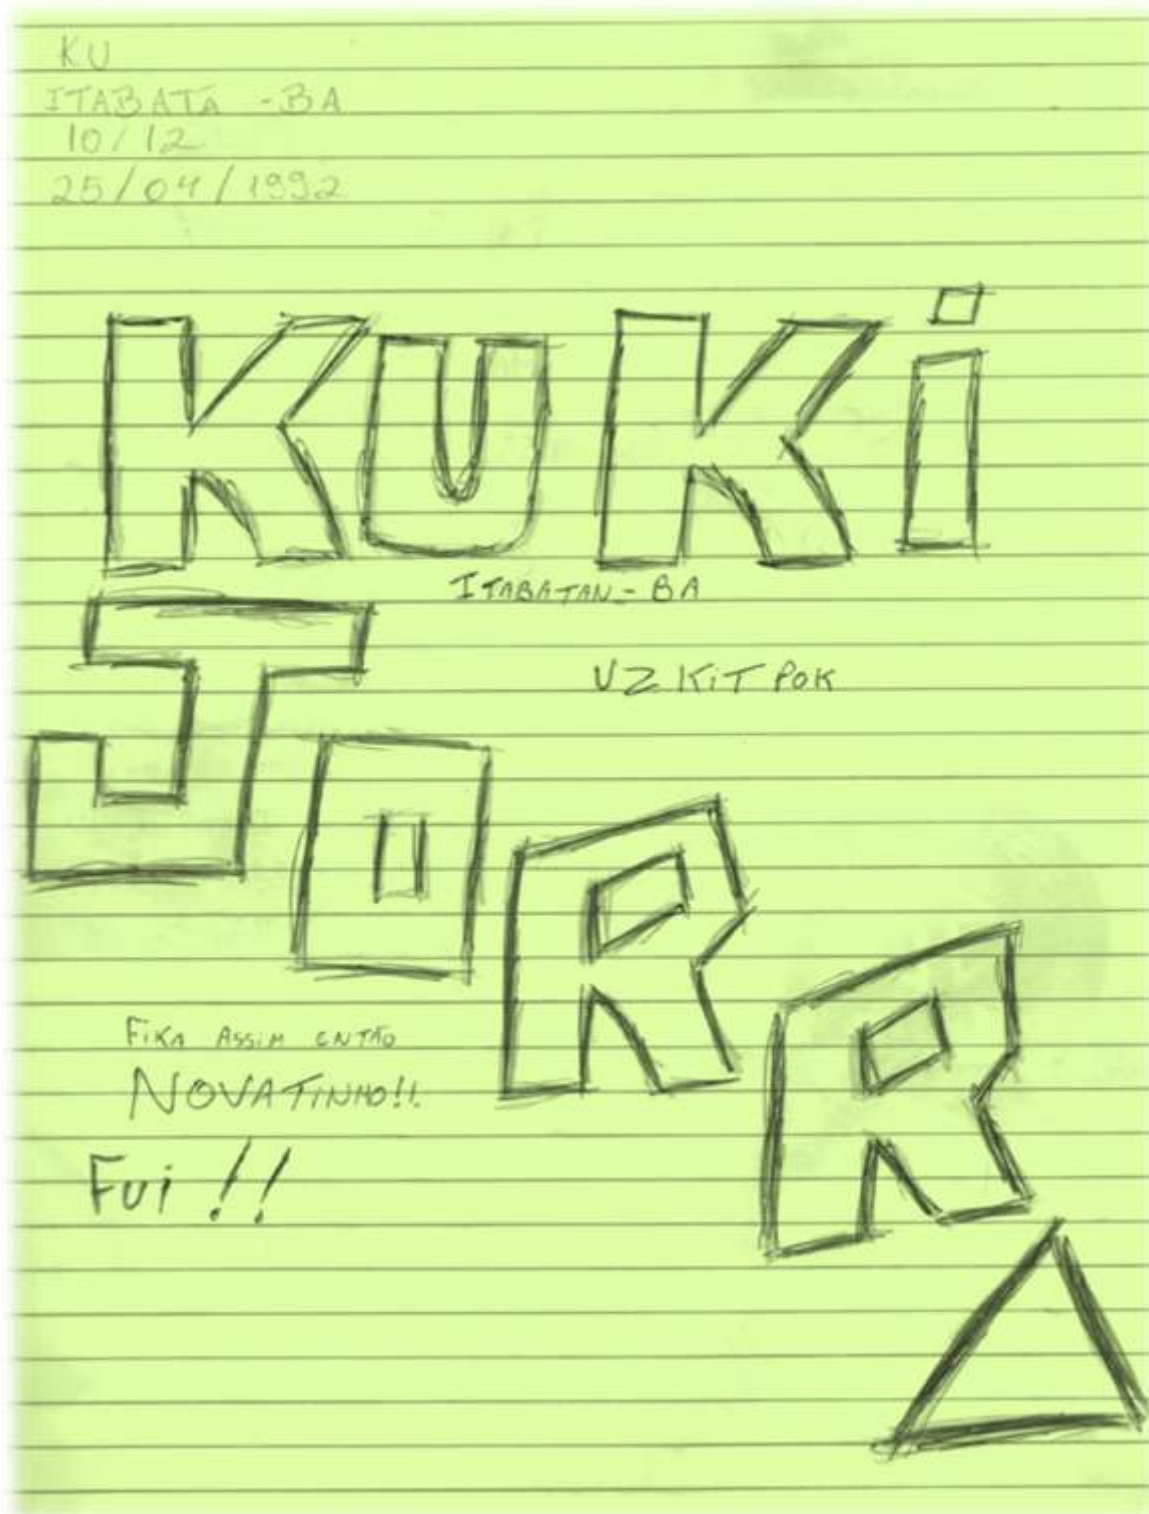 KU
ITABATÃ -BA
10/12
25/04/1992
KUKi
ITABATAN - BA
JORRA
UZ KiT POK
FiKA ASSiM ENTÃO
NOVATINHO!!
Fui !!